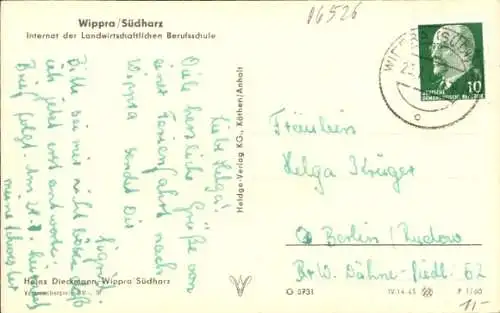 Wippra/Südharz
Internat der Landwirtschaftlichen Berufsschule
06526
WIPPRA (SÜDHARZ)
DEUTSCHE
DEMOKRATISCHE REPUBLIK
10
Liebe Helga!
Viele herzliche Grüße von
einer Ferienfahrt nach
Wippra sendet Dir
Sigrid
Bitte sei mir nicht böse, daß
ich jetzt erst antworte.
Brief folgt. Am 21.7. heiratet
meine Schwester
Heldge-Verlag KG., Köthen/Anhalt
Fräulein
Helga Krüger
Berlin / Rudow
Dähne-Siedl. 62
Heinz Dieckmann, Wippra Südharz
O 5731
IV-14-45
P 1/60
11,-